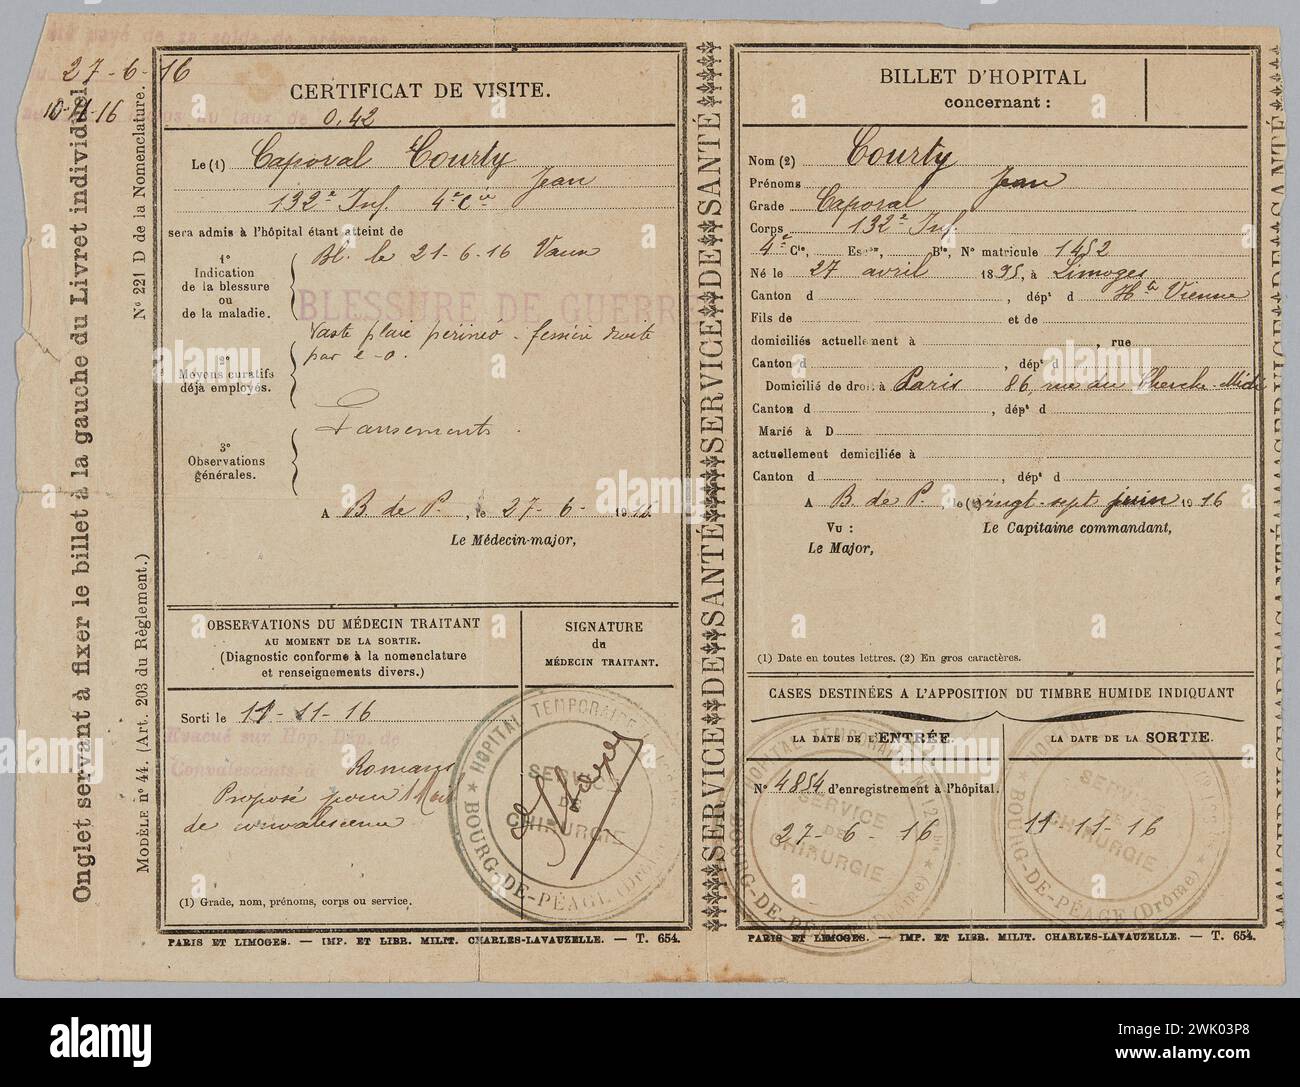 été payé de sa solde de présence
27-6-16
10-11-16
au taux de
Onglet servant à fixer le billet à la gauche du Livret individuel.
Modèle n° 44. (Art. 203 du Règlement.)
N° 221 D de la Nomenclature.
CERTIFICAT DE VISITE.
0,42
Le (1) Caporal Courty
Jean
132e Inf. 4e Cie
sera admis à l'hôpital étant atteint de
1°
Indication
de la blessure
ou
de la maladie.
Bl. le 21-6-16 Vaux
BLESSURE DE GUERRE
Vaste plaie périnéo-fessière droite
par e-o.
2°
Moyens curatifs
déjà employés.
Pansements.
3°
Observations
générales.
A B. de P., le 27-6-1916
Le Médecin-major,
OBSERVATIONS DU MÉDECIN TRAITANT
AU MOMENT DE LA SORTIE.
(Diagnostic conforme à la nomenclature
et renseignements divers.)
SIGNATURE
du
MÉDECIN TRAITANT.
Sorti le 11-11-16
Evacué sur Hop. Dép. de
Convalescents à Romans
Proposé pour 1 Mois
de convalescence
HOPITAL TEMPORAIRE
SERVICE
DE
CHIRURGIE
BOURG-DE-PÉAGE (Drôme)
(1) Grade, nom, prénoms, corps ou service.
PARIS ET LIMOGES. — IMP. ET LIBR. MILIT. CHARLES-LAVAUZELLE. — T. 654.
SERVICE DE SANTÉ SERVICE DE SANTÉ SERVICE DE SANTÉ
BILLET D'HOPITAL
concernant :
Nom (2) Courty
Prénoms Jean
Grade Caporal
Corps 132e Inf.
4e Cie, Escon, Bie, N° matricule 1452
Né le 27 avril 1895, à Limoges
Canton d , dépt d Hte Vienne
Fils de et de
domiciliés actuellement à , rue
Canton d , dépt d
Domicilié de droit à Paris 86, rue du Cherche-Midi
Canton d , dépt d
Marié à D
actuellement domiciliée à
Canton d , dépt d
A B. de P., le (1) vingt-sept juin 1916
Vu :
Le Capitaine commandant,
Le Major,
(1) Date en toutes lettres. (2) En gros caractères.
CASES DESTINÉES A L'APPOSITION DU TIMBRE HUMIDE INDIQUANT
LA DATE DE L'ENTRÉE.
LA DATE DE LA SORTIE.
N° 4854 d'enregistrement à l'hôpital.
27-6-16
11-11-16
HOPITAL TEMPORAIRE
SERVICE
DE
CHIRURGIE
BOURG-DE-PÉAGE (Drôme)
SERVICE
DE
CHIRURGIE
BOURG-DE-PÉAGE (Drôme)
PARIS ET LIMOGES. — IMP. ET LIBR. MILIT. CHARLES-LAVAUZELLE. — T. 654.
alamy
Image ID: 2WK03P8
www.alamy.com